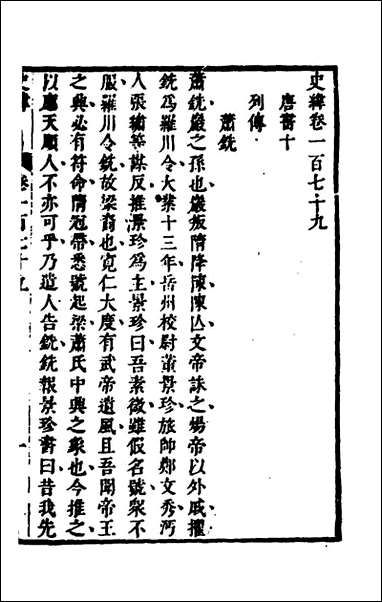 史緯卷一百七十九
唐書十
列傳
蕭銑
蕭銑巖之孫也巖叛隋降陳陳亾文帝誅之煬帝以外戚擢
銑爲羅川令大業十三年岳州校尉董景珍旅帥鄭文秀沔
人張繡等謀反推景珍爲主景珍曰吾素微雖假名號眾不
服羅川令銑故梁裔也寬仁大度有武帝遺風且吾聞帝王
之興必有符命隋冠帶悉號起梁蕭氏中興之象也今推之
以應天順人不亦可乎乃遣人告銑銑報景珍書曰昔我先
卷一百七十九